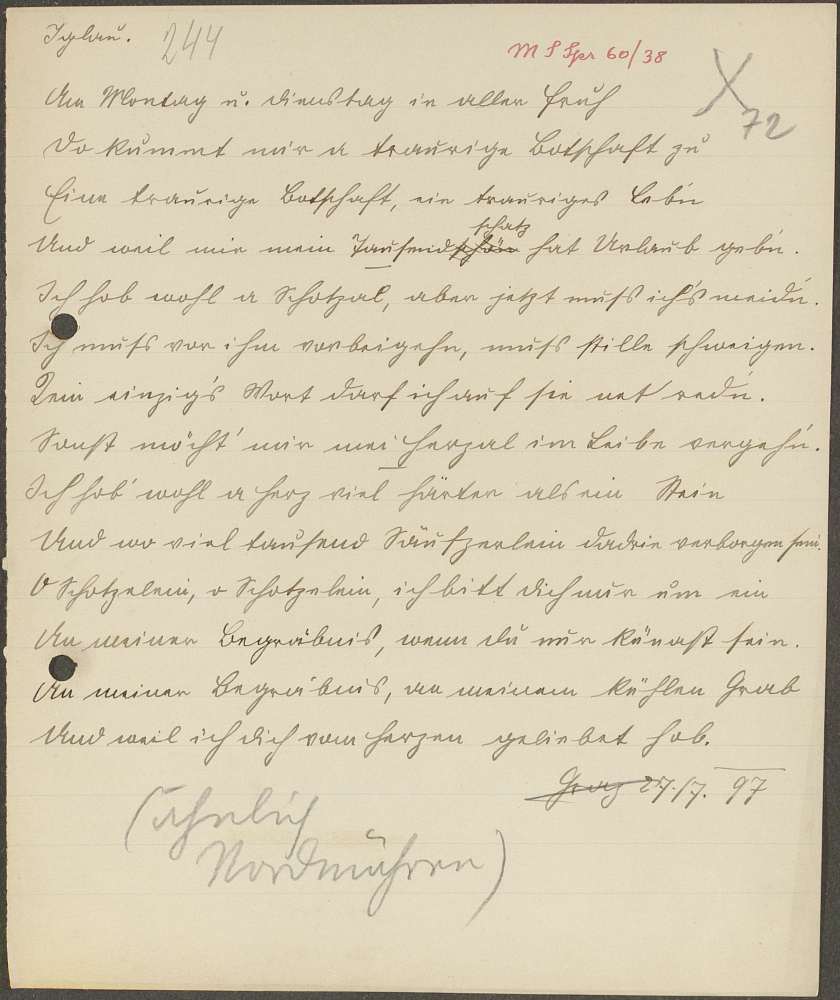 Iglau. 244
M S Spr 60/38
X 72
Am Montag u. dienstag in aller fruh
Do kummt mir a traurige Botschaft zu
Eine traurige Botschaft, ein trauriges Leb'n
schatz
Und weil mir mein Tausendschön hat Urlaub geb'n.
Ich hob wohl a Schotzal, aber jetzt muſs ich's meid'n.
Ich muſs vor ihm vorbeigehn, muſs stille schweigen.
Kein einzig's Wort darf ich auf sie net red'n.
Sonst möcht' mir mei herzal im Leibe vergeh'n.
Ich hob' wohl a herz viel härter als ein Stein
Und wo viel tausend Säufzerlein dadrin verborgen sein.
O Schotzelein, o Schotzelein, ich bitt dich nur um ein
An meiner Begräbnis, wenn du nur kannst sein.
An meiner Begräbnis, an meinem kühlen Grab
Und weil ich dich vom herzen geliebet hob.
Graz 27./7. 97
(ähnlich
Nordmähren)